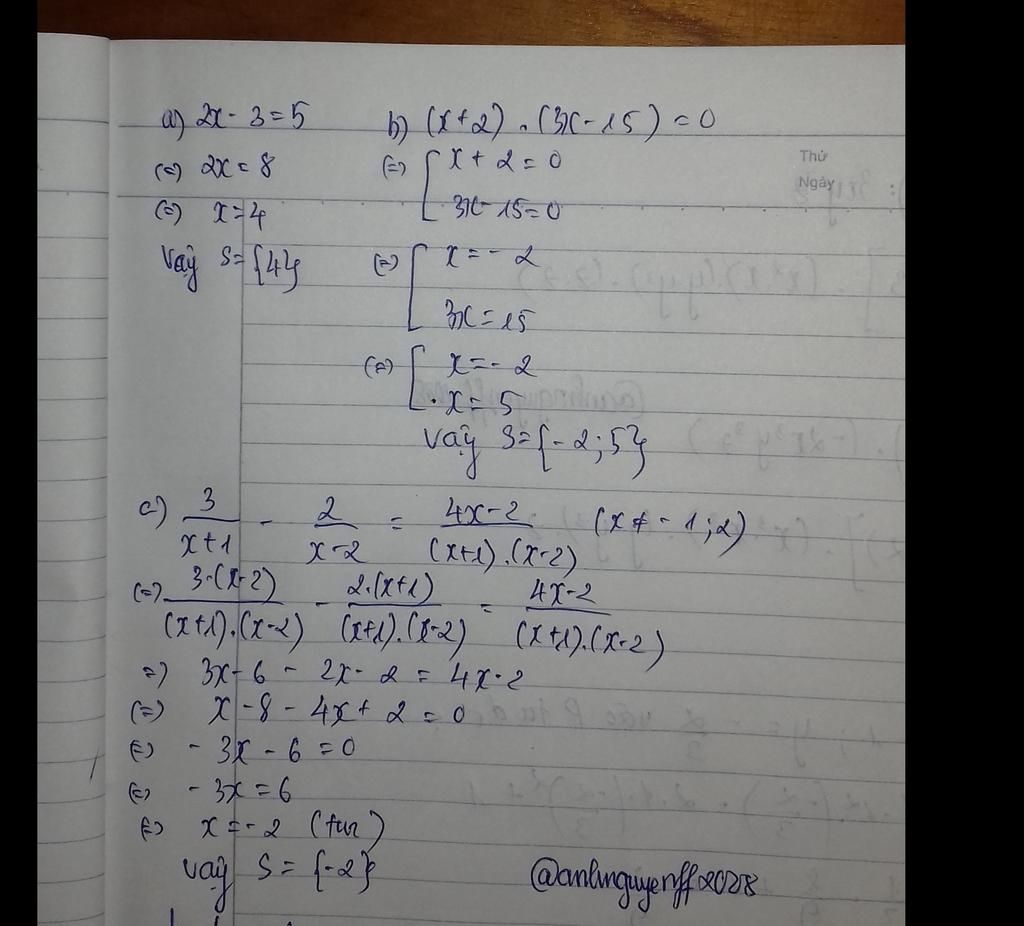 a) 2x - 3 = 5
(=) 2x = 8
(=) x = 4
Vậy S = {4}
b) (x+2) . (3x - 15) = 0
(=) [ x + 2 = 0
3x - 15 = 0
(=) [ x = - 2
3x = 15
(=) [ x = - 2
x = 5
Vậy S = {- 2 ; 5}
Thứ
Ngày
c) 3/(x+1) - 2/(x-2) = (4x-2)/((x+1).(x-2)) (x ≠ - 1 ; 2)
(=) 3.(x-2)/((x+1).(x-2)) - 2.(x+1)/((x+1).(x-2)) = (4x-2)/((x+1).(x-2))
=) 3x - 6 - 2x - 2 = 4x - 2
(=) x - 8 - 4x + 2 = 0
(=) - 3x - 6 = 0
(=) - 3x = 6
(=) x = - 2 (tm)
Vậy S = {-2}
@anhnguyenff2028